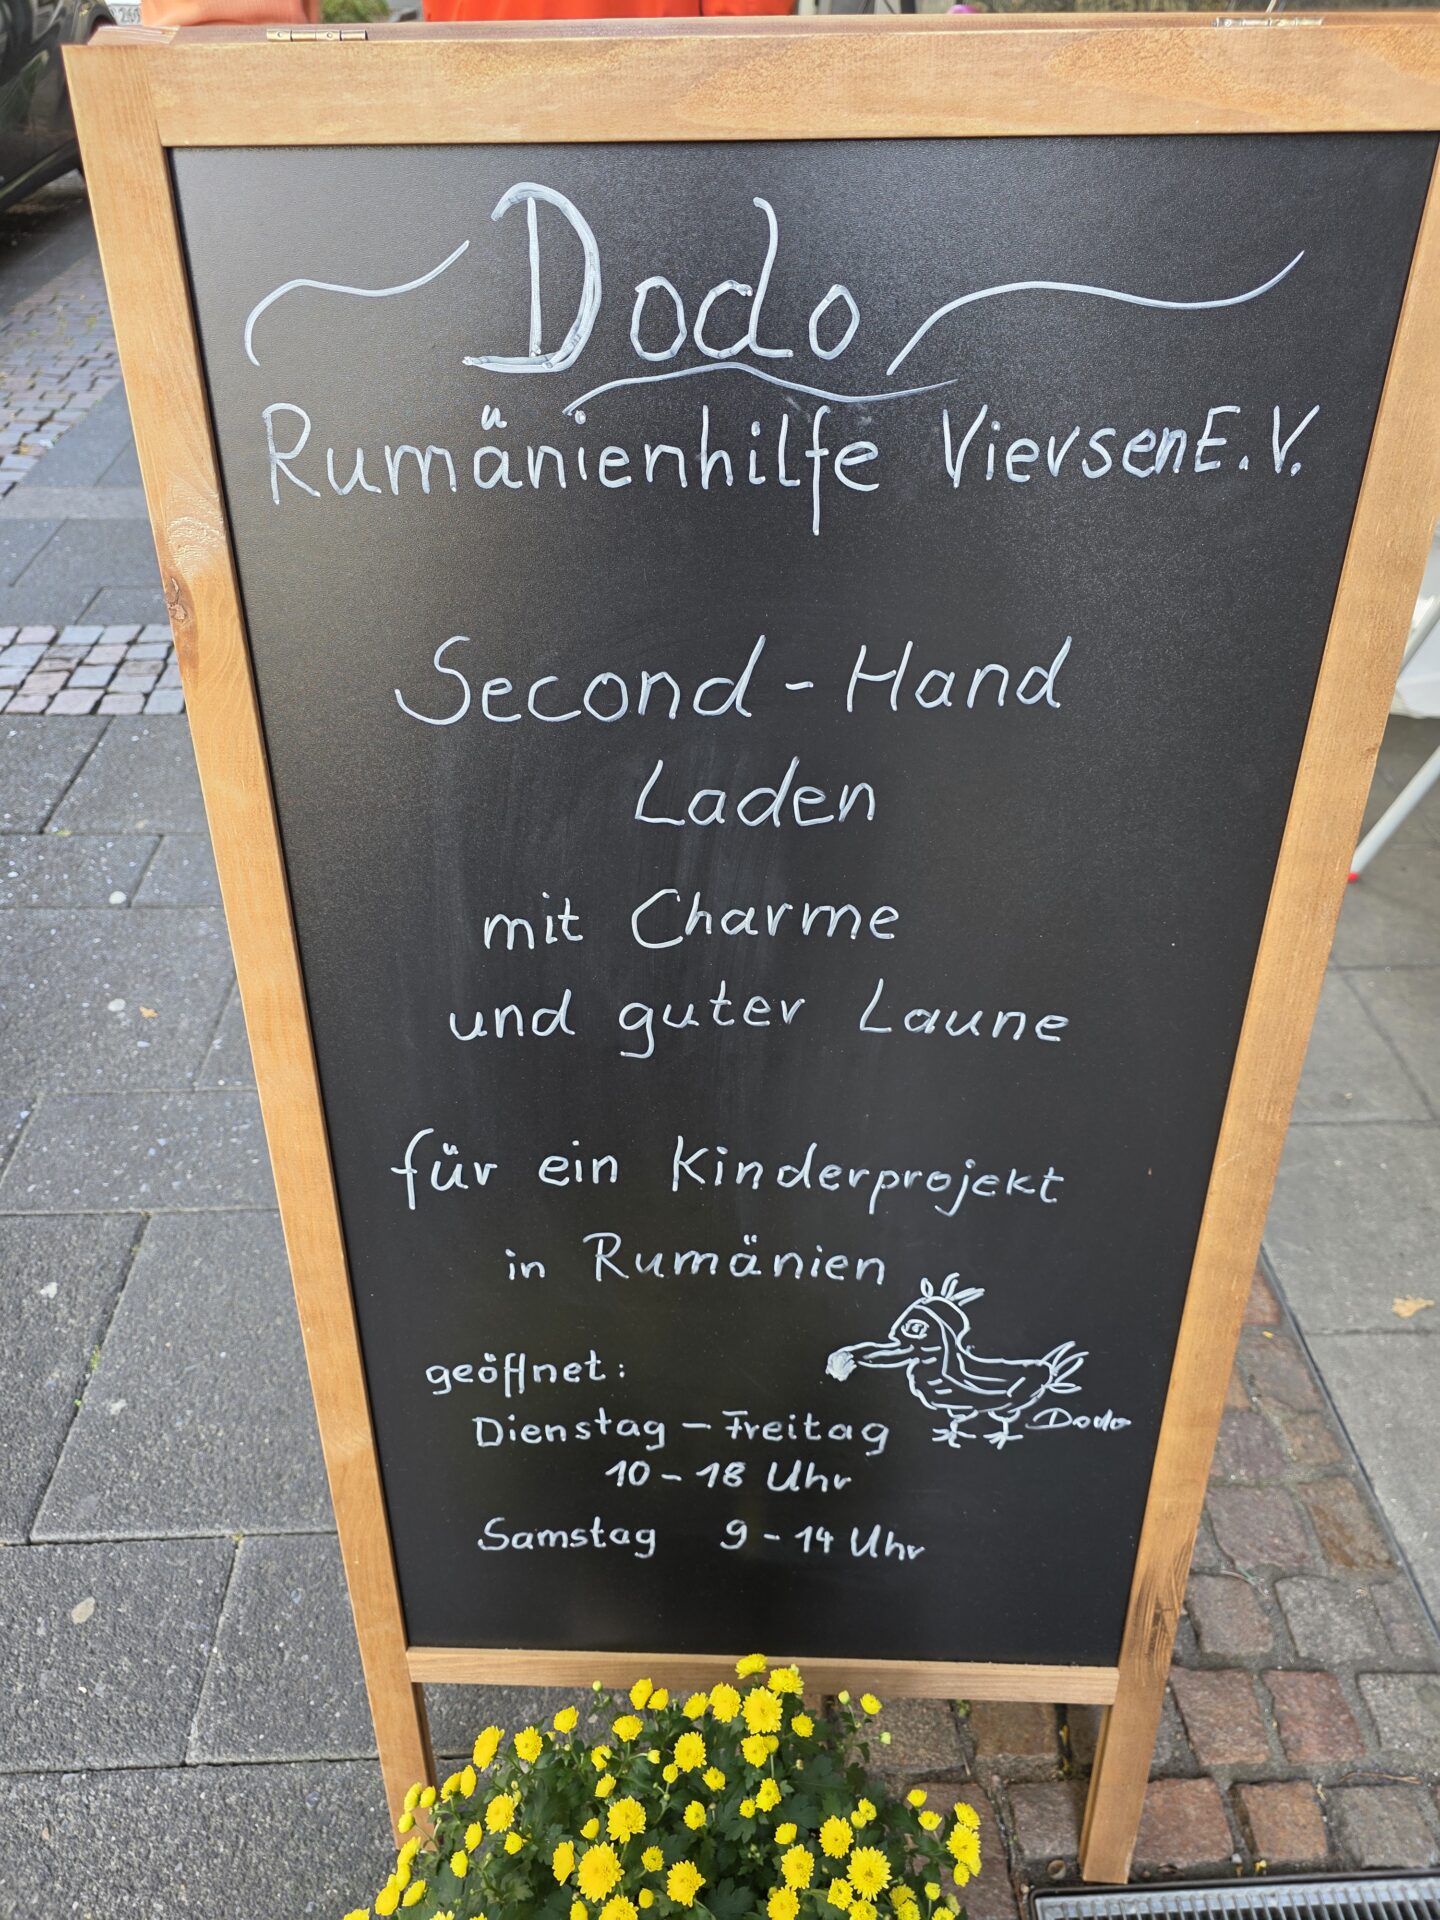 Dodo
Rumänienhilfe Viersen E.V.
Second-Hand
Laden
mit Charme
und guter Laune
für ein Kinderprojekt
in Rumänien
geöffnet:
Dienstag - Freitag
10 - 18 Uhr
Samstag 9 - 14 Uhr
Dodo